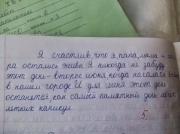 Я счастлив что я папа, мама и се-
ра остались живы. Я никогда не забуду
этот день- второе июня, когда началась
в нашем городе. И для меня этот день
останется, как самый памятный день
летних каникул.
5